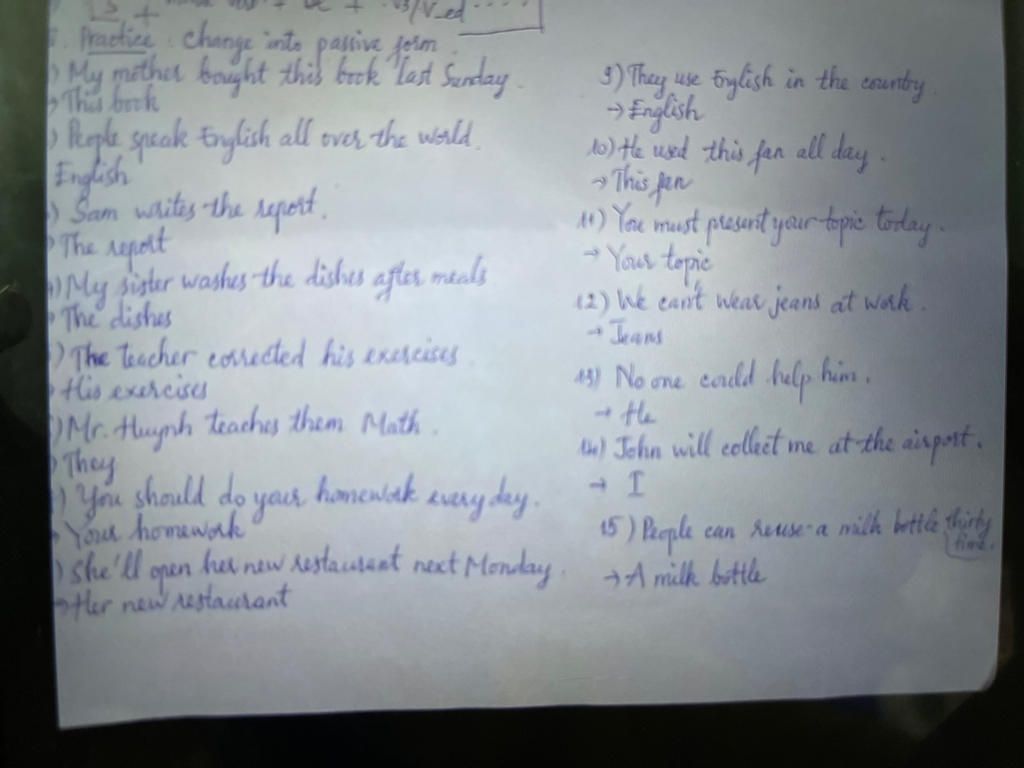 + be + V3/V_ed ....
. Practice : Change into passive form .
) My mother bought this book last Sunday .
→ This book
) People speak English all over the world .
English
) Sam writes the report .
→ The report
) My sister washes the dishes after meals
→ The dishes
) The teacher corrected his exercises .
→ His exercises
) Mr. Huynh teaches them Math .
→ They
) You should do your homework every day .
→ Your homework
) She'll open her new restaurant next Monday .
→ Her new restaurant
9) They use English in the country .
→ English
10) He used this fan all day .
→ This fan
11) You must present your topic today .
→ Your topic
12) We can't wear jeans at work .
→ Jeans
13) No one could help him .
→ He
14) John will collect me at the airport .
→ I
15) People can reuse a milk bottle thirty
time .
→ A milk bottle